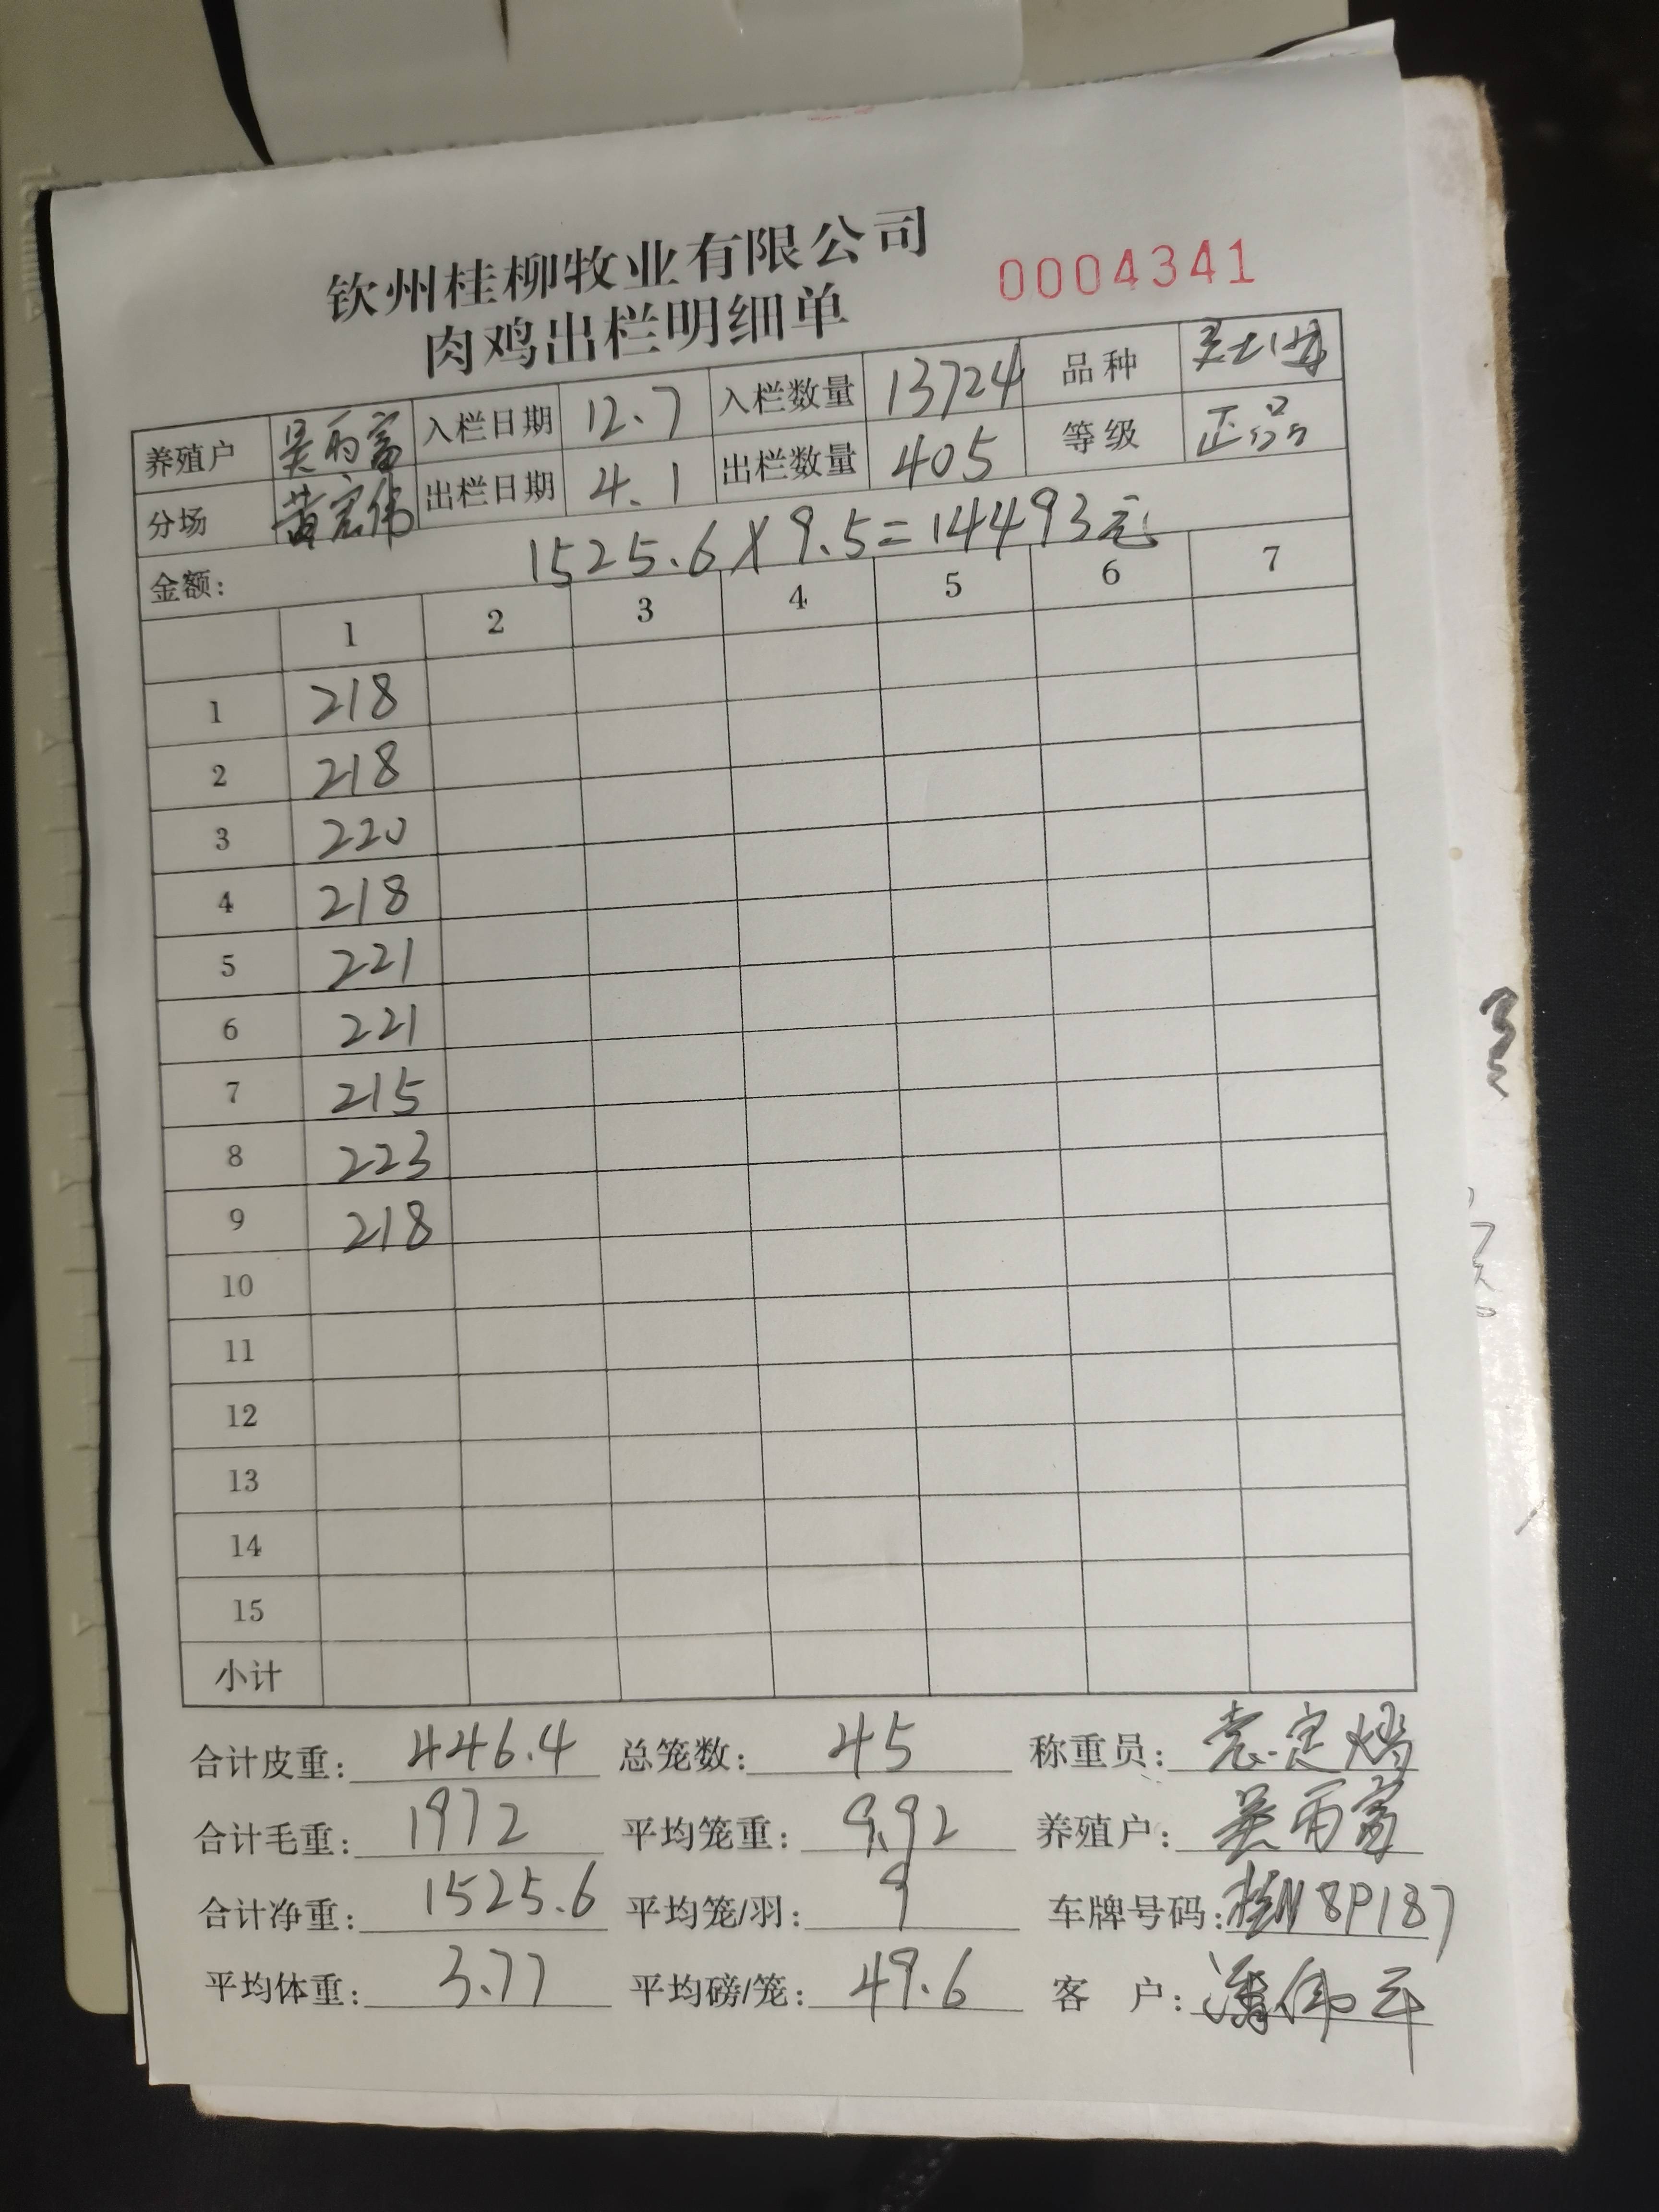 钦州桂柳牧业有限公司
肉鸡出栏明细单 0004341
养殖户 吴雨富 入栏日期 12.7 入栏数量 13724 品种
分场 黄宏伟 出栏日期 4.1 出栏数量 405 等级 正品
金额: 1525.6×9.5=14493元
1 2 3 4 5 6 7
1 218
2 218
3 220
4 218
5 221
6 221
7 215
8 223
9 218
10
11
12
13
14
15
小计
合计皮重: 446.4 总笼数: 45 称重员:
合计毛重: 1972 平均笼重: 9.92 养殖户: 吴雨富
合计净重: 1525.6 平均笼/羽: 9 车牌号码: 桂N8P187
平均体重: 3.77 平均磅/笼: 49.6 客户: 潘伟平